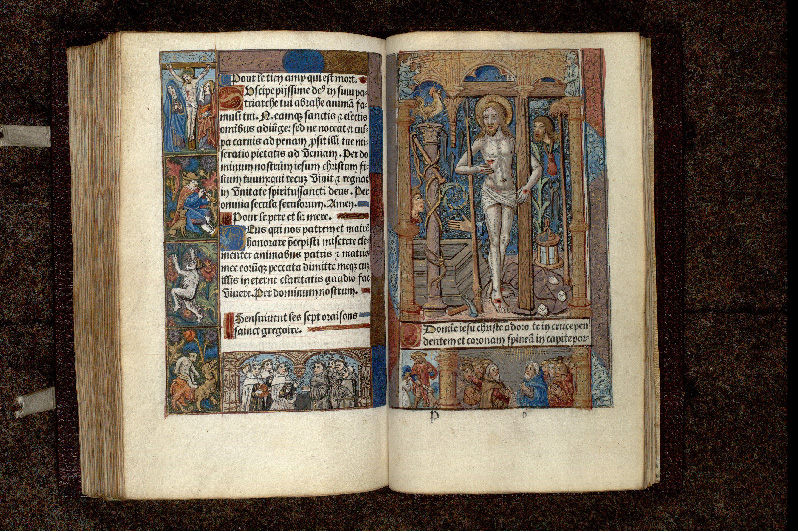 Pour le tien amy qui est mort.
Uscipe piissime de⁹ in sinu pa-
triarche tui abrahe animā fa-
muli tui. N. eamq; sanctis ⁊ electis
omnibus adiūge: sed ne noceat ei cul-
pa carnis ad penam ꝓsit illi tue mi-
seratio pietatis ad veniam. Per do
minum nostrum iesum christum fi-
lium tuum: qui tecū vivit ⁊ regnat
in vnitate spiritussancti deus. Per
omnia secula seculorum. Amen.
Pour se pere et sa mere.
Eus qui nos patrem et matrē
honorare p̄cepisti miserere cle-
menter animabus patris ⁊ matris
mee eorūq; peccata dimitte meq; cū
illis in eterne claritatis gaudio fac
vivere. Per dominum nostrum.
Sensuivent les sept oraisons
sainct gregoire.
Domine iesu christe adoro te in cruce pen
dentem et coronam spineā in capite por-